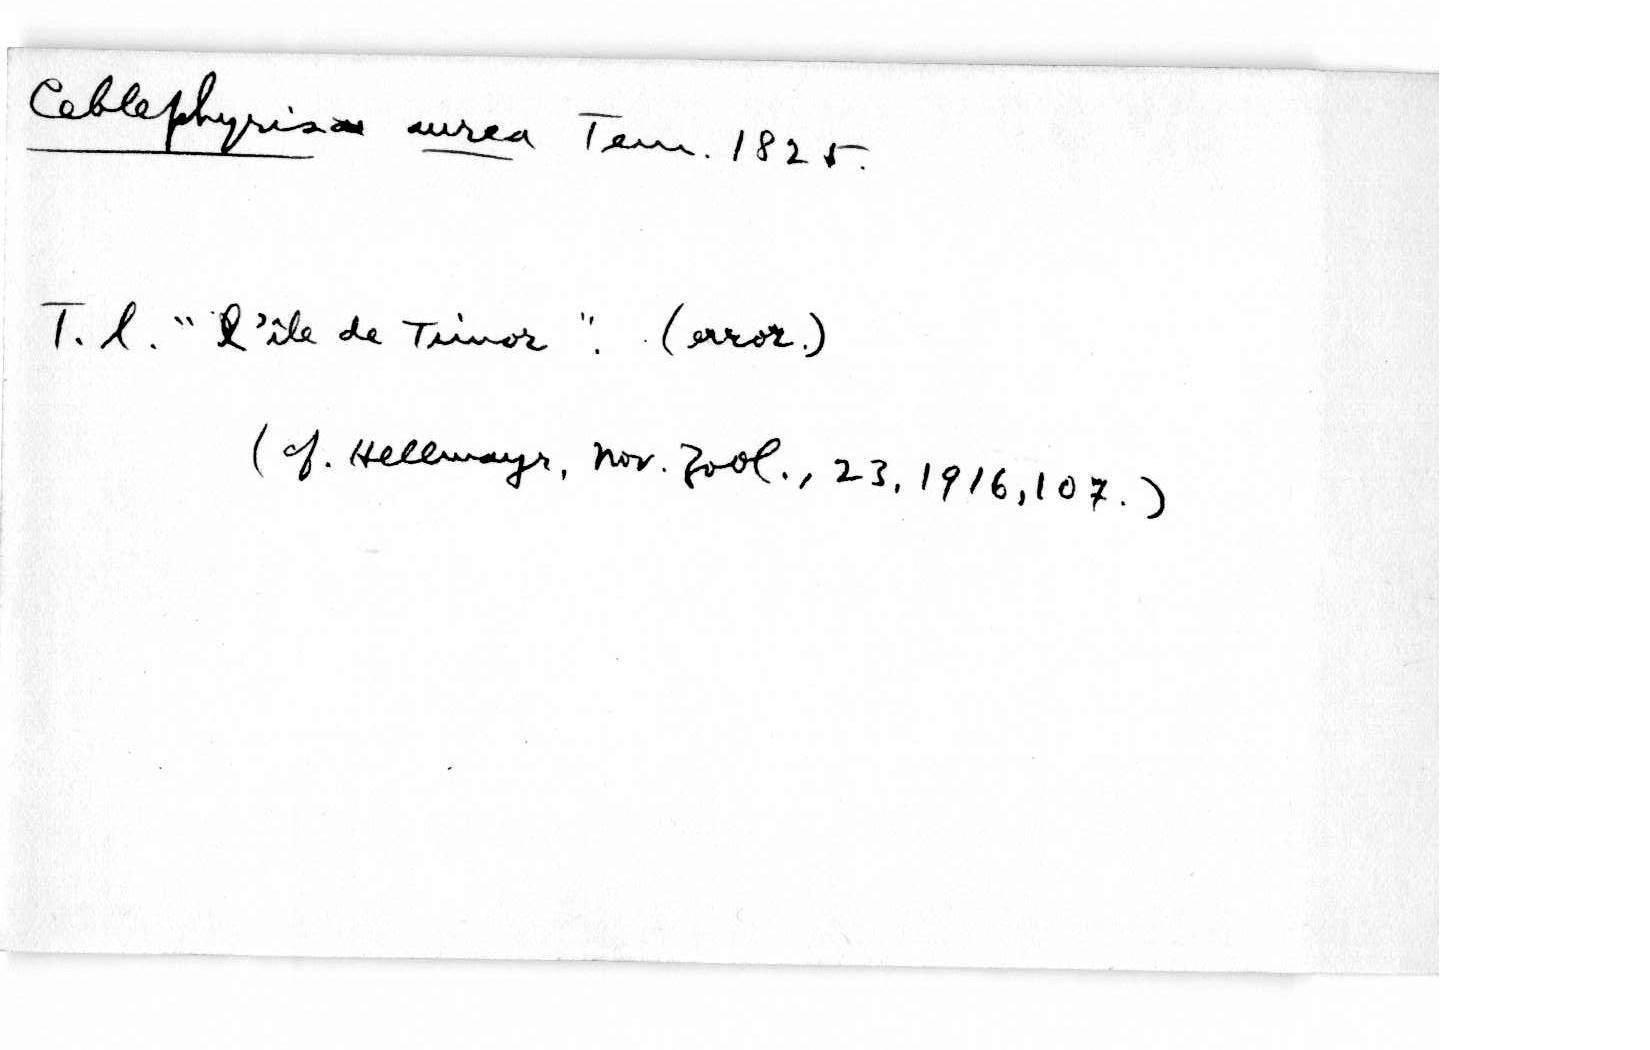 Ceblephyris aurea Tem. 1825.
T. l. "l'île de Timor". (error.)
(cf. Hellmayr, Nov. Zool., 23, 1916, 107.)